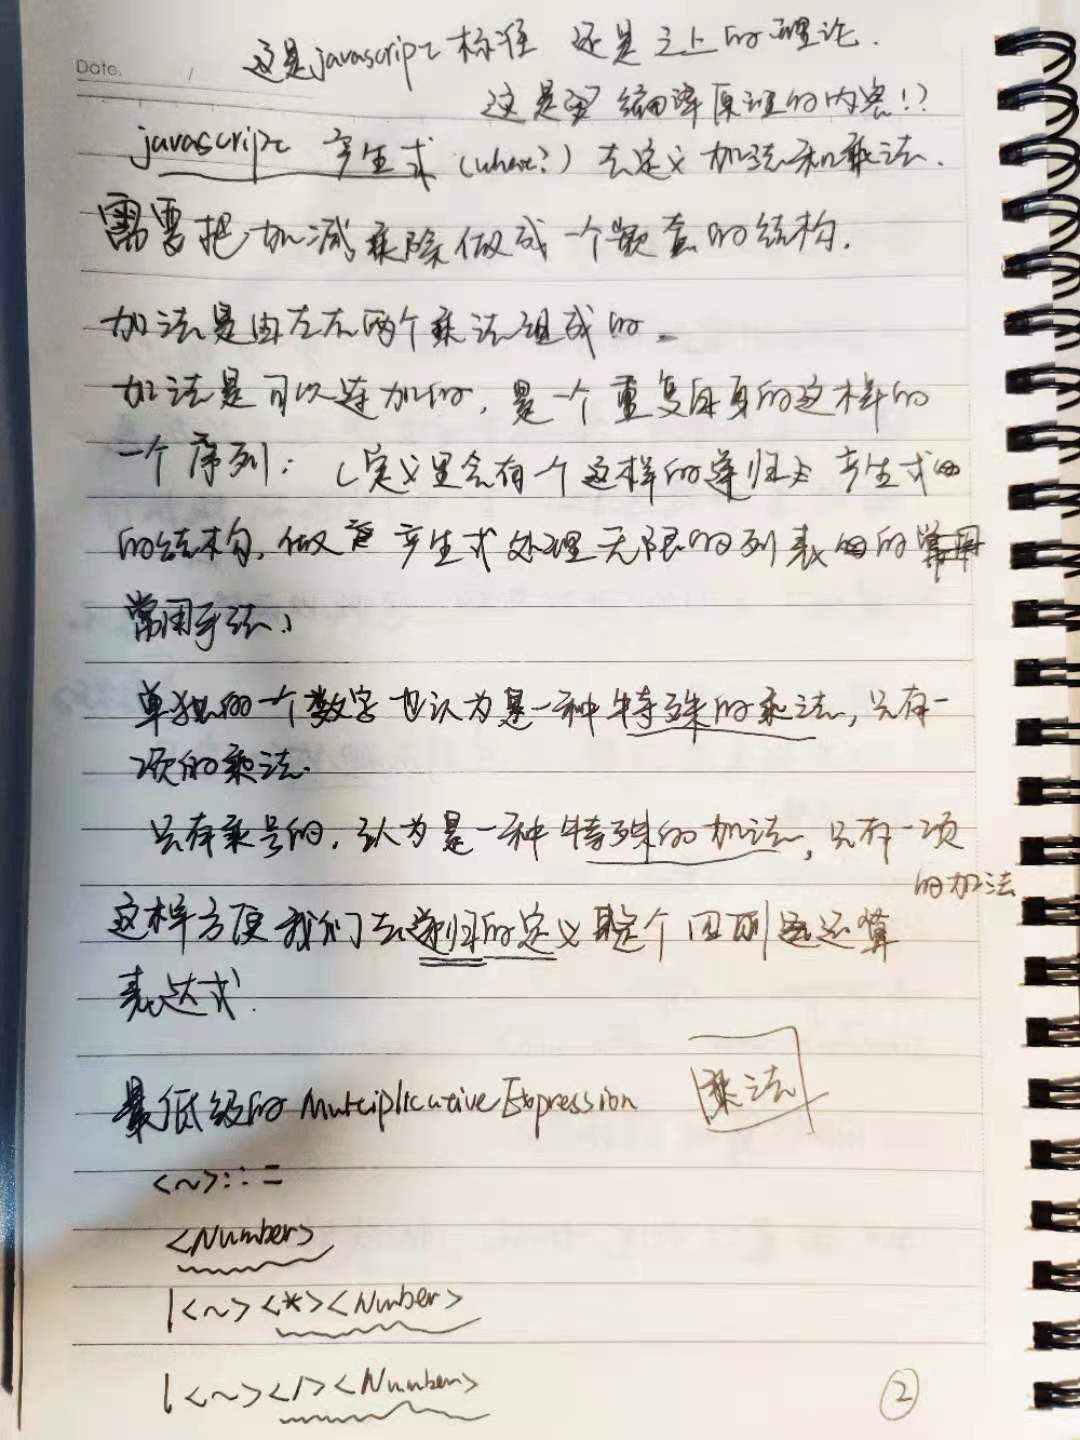 Date.
这是javascript标准 还是之上的理论.
这是 编译原理的内容!?
javascript 产生式 (what?) 去定义加法和乘法.
需要把加减乘除做成一个嵌套的结构.
加法是由左右两个乘法组成的.
加法是可以连加的, 是一个重复自身的这样的
一个序列; (定义里会有一个这样的递归 产生式
的结构, 做 产生式处理无限的列表 的
常用手法.)
单独的一个数字也认为是一种特殊的乘法, 只有一
项的乘法.
只有乘号的, 认为是一种特殊的加法, 只有一项
的加法
这样方便我们去递归的定义整个四则运算
表达式.
最低级的 MultiplicativeExpression 乘法
<~>::=
<Number>
|<~><*><Number>
|<~></><Number>
2